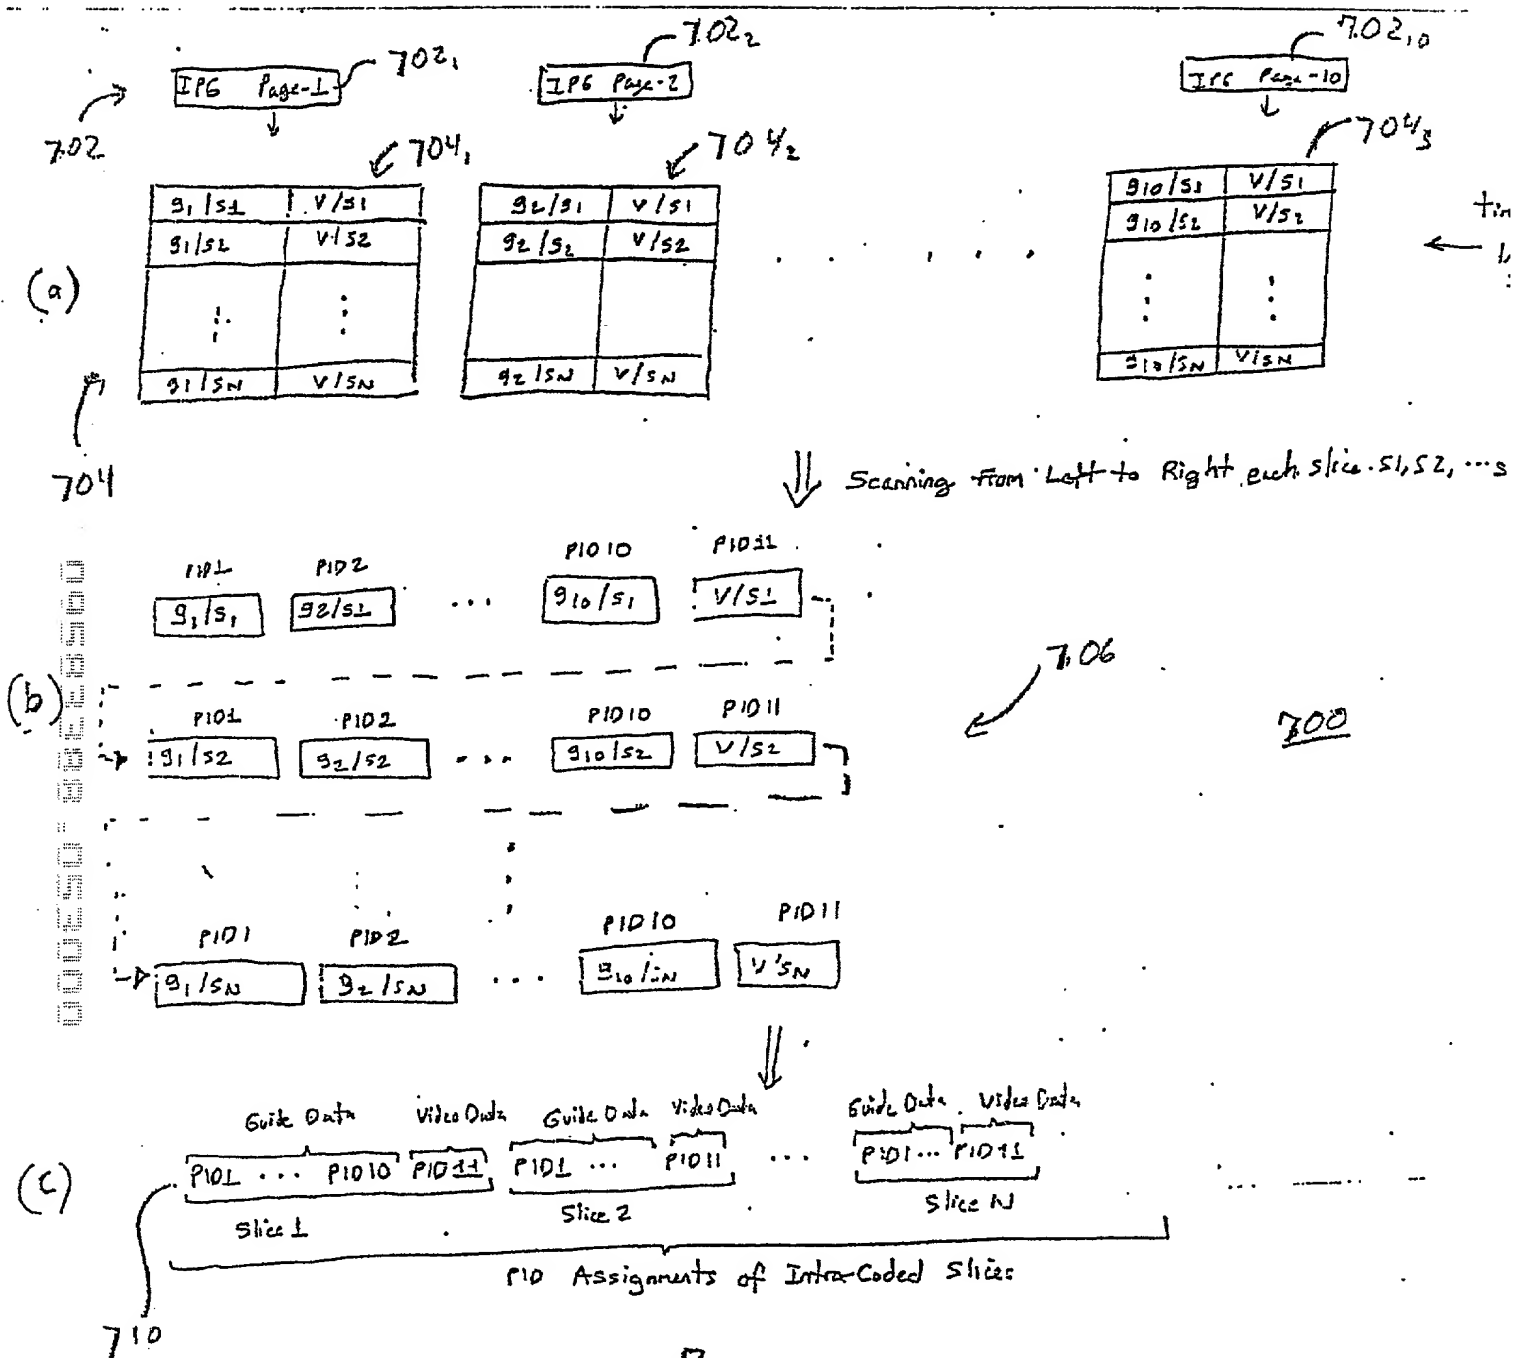 702₁
702₂
702₁₀
IPG Page-1
IPG Page-2
IPG Page-10
702
704₁
704₂
704₃
g₁/s1 V/s1
g₂/s1 V/s1
g₁₀/s1 V/s1
g₁/s2 V/s2
g₂/s₂ V/s2
g₁₀/s₂ V/s₂
(a)
g₁/sN V/sN
g₂/sN V/sN
g₁₀/sN V/sN
704
Scanning From Left to Right each slice s1, s2, ...s
PID1 PID2 PID10 PID11
g₁/s₁ g2/s1 ... g₁₀/s₁ V/s1
706
(b)
PID1 PID2 PID10 PID11
g₁/s2 g₂/s2 ... g₁₀/s2 V/s2
700
PID1 PID2 PID10 PID11
g₁/sN g₂/sN ... g₁₀/sN V/sN
Guide Data Video Data Guide Data Video Data Guide Data Video Data
(c) PID1 ... PID10 PID11 PID1 ... PID11 ... PID1... PID11
Slice 1 Slice 2 Slice N
PID Assignments of Intra-Coded Slices
710